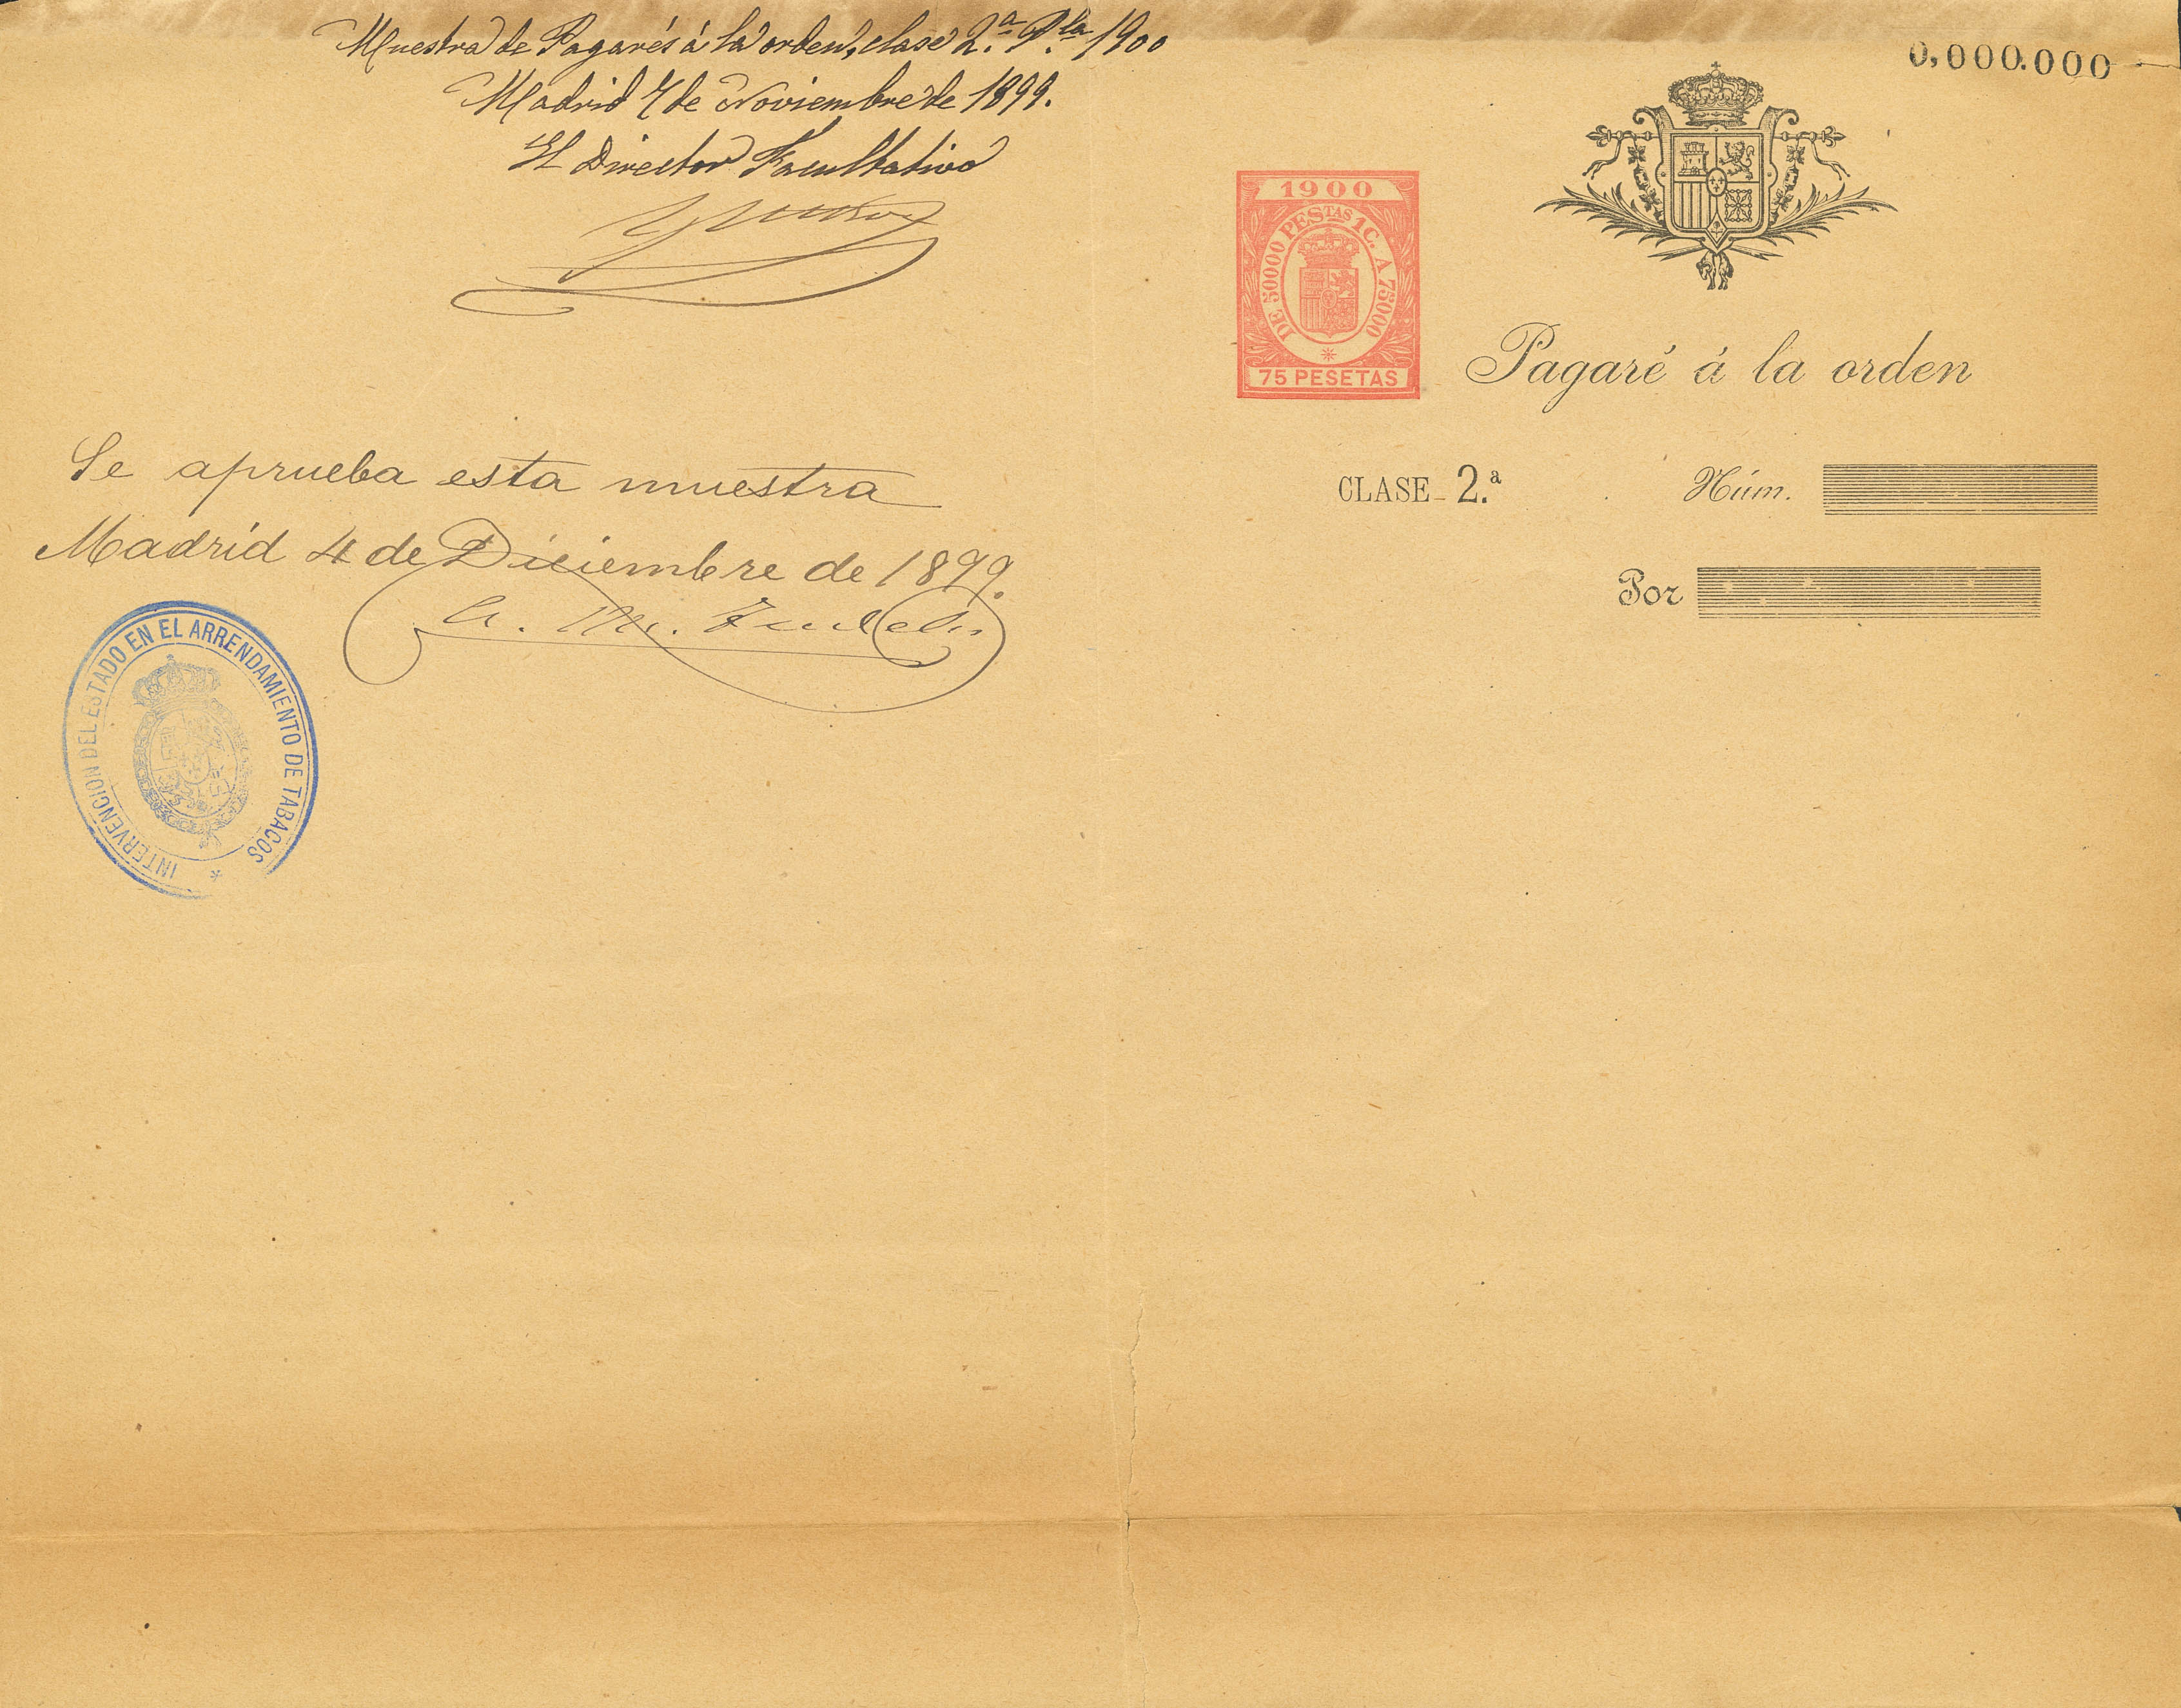 Muestra de Pagarés á la orden, clase 2.ª P.la 1900
Madrid 7 de Noviembre de 1899.
El Director Facultativo
Se aprueba esta muestra
Madrid 4 de Diciembre de 1899.
INTERVENCION DEL ESTADO EN EL ARRENDAMIENTO DE TABACOS
0,000.000
1900
DE 50000 PESTAS 1C. A 75000
75 PESETAS
Pagaré á la orden
CLASE 2.ª
Núm.
Por